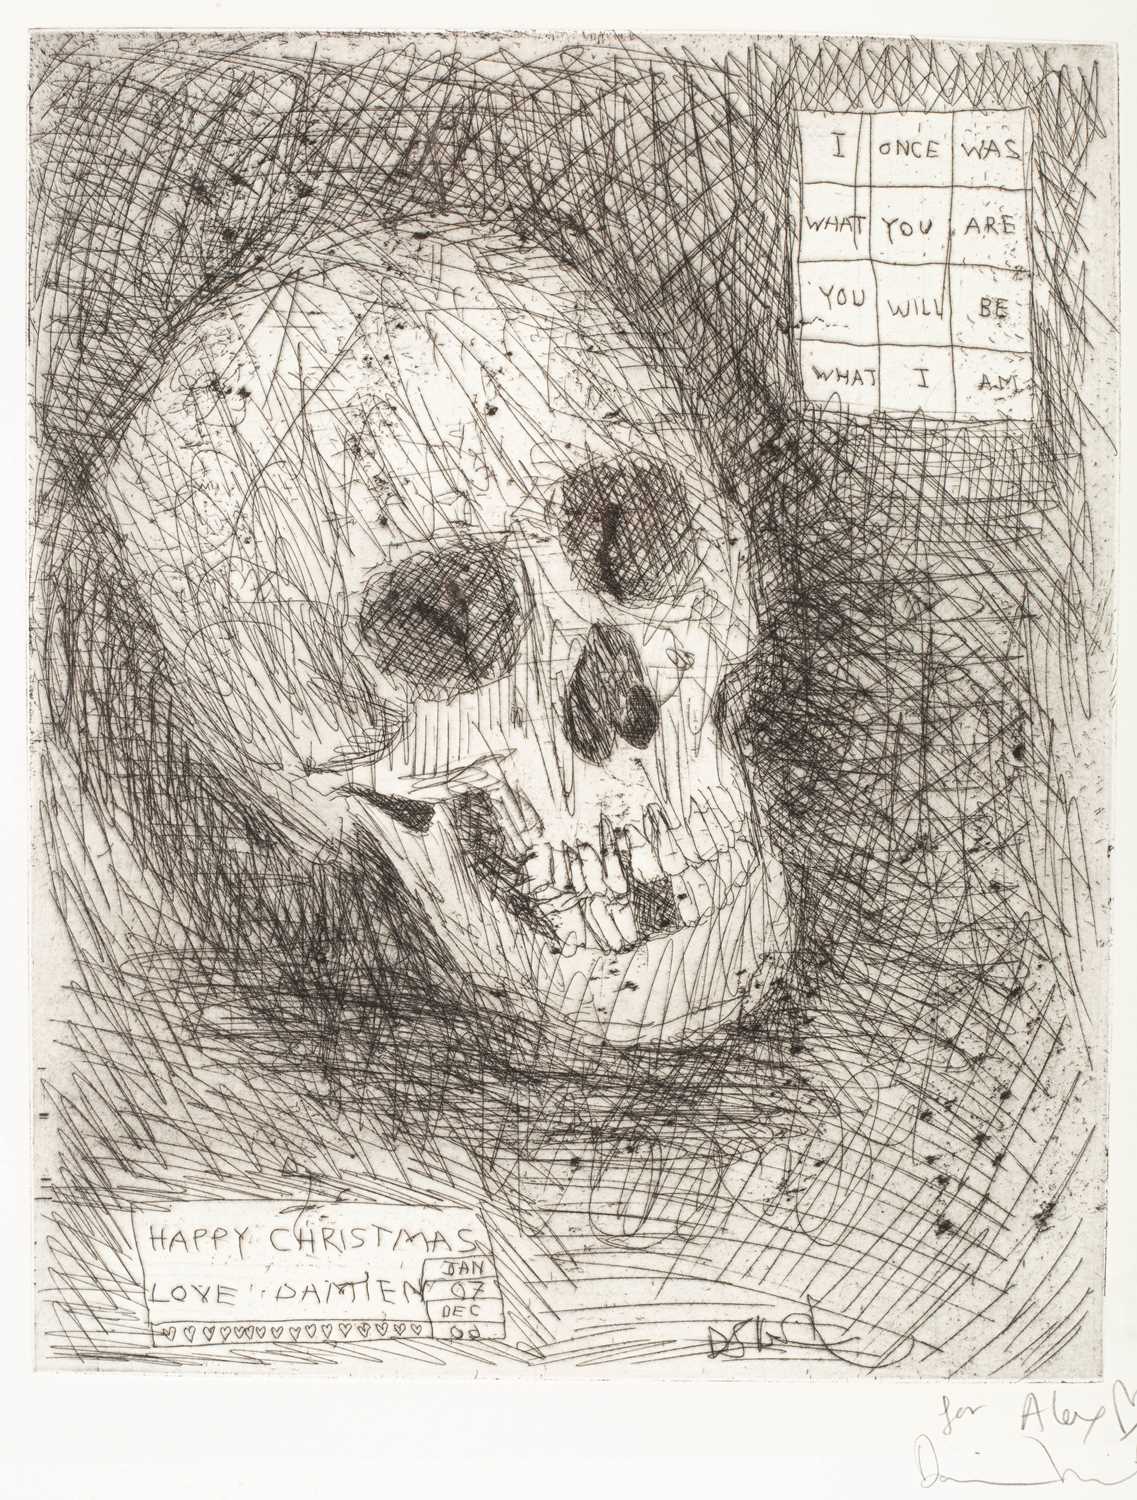 I ONCE WAS
WHAT YOU ARE
YOU WILL BE
WHAT I AM
HAPPY CHRISTMAS
LOVE DAMIEN
JAN
07
DEC
for Alex
Damien